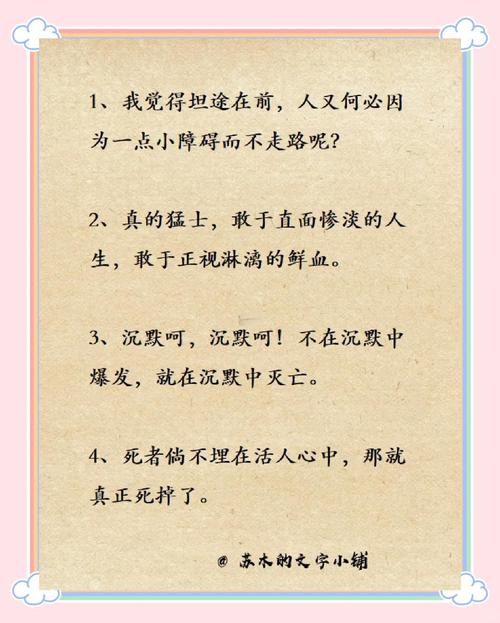 1、我觉得坦途在前，人又何必因
为一点小障碍而不走路呢？
2、真的猛士，敢于直面惨淡的人
生，敢于正视淋漓的鲜血。
3、沉默呵，沉默呵！不在沉默中
爆发，就在沉默中灭亡。
4、死者倘不埋在活人心中，那就
真正死掉了。
@ 苏木的文字小铺